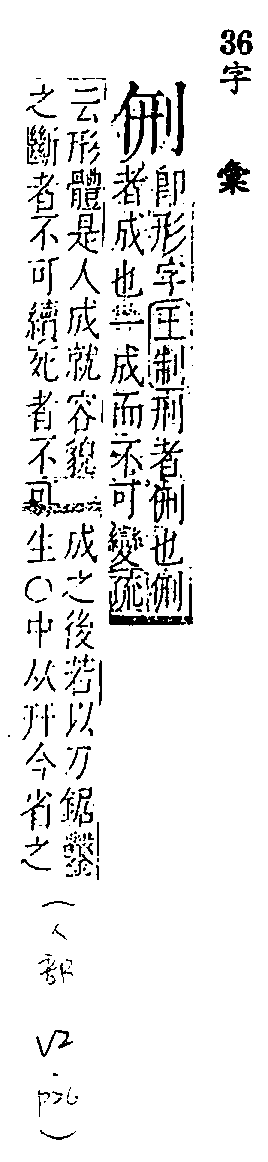 36字彙
侀
即形字王制刑者侀也侀
者成也一成而不可變疏
云形體是人成就容貌 成之後若以刀鋸鑿
之斷者不可續死者不可生○中从幵今省之
(人部 V2 p26)